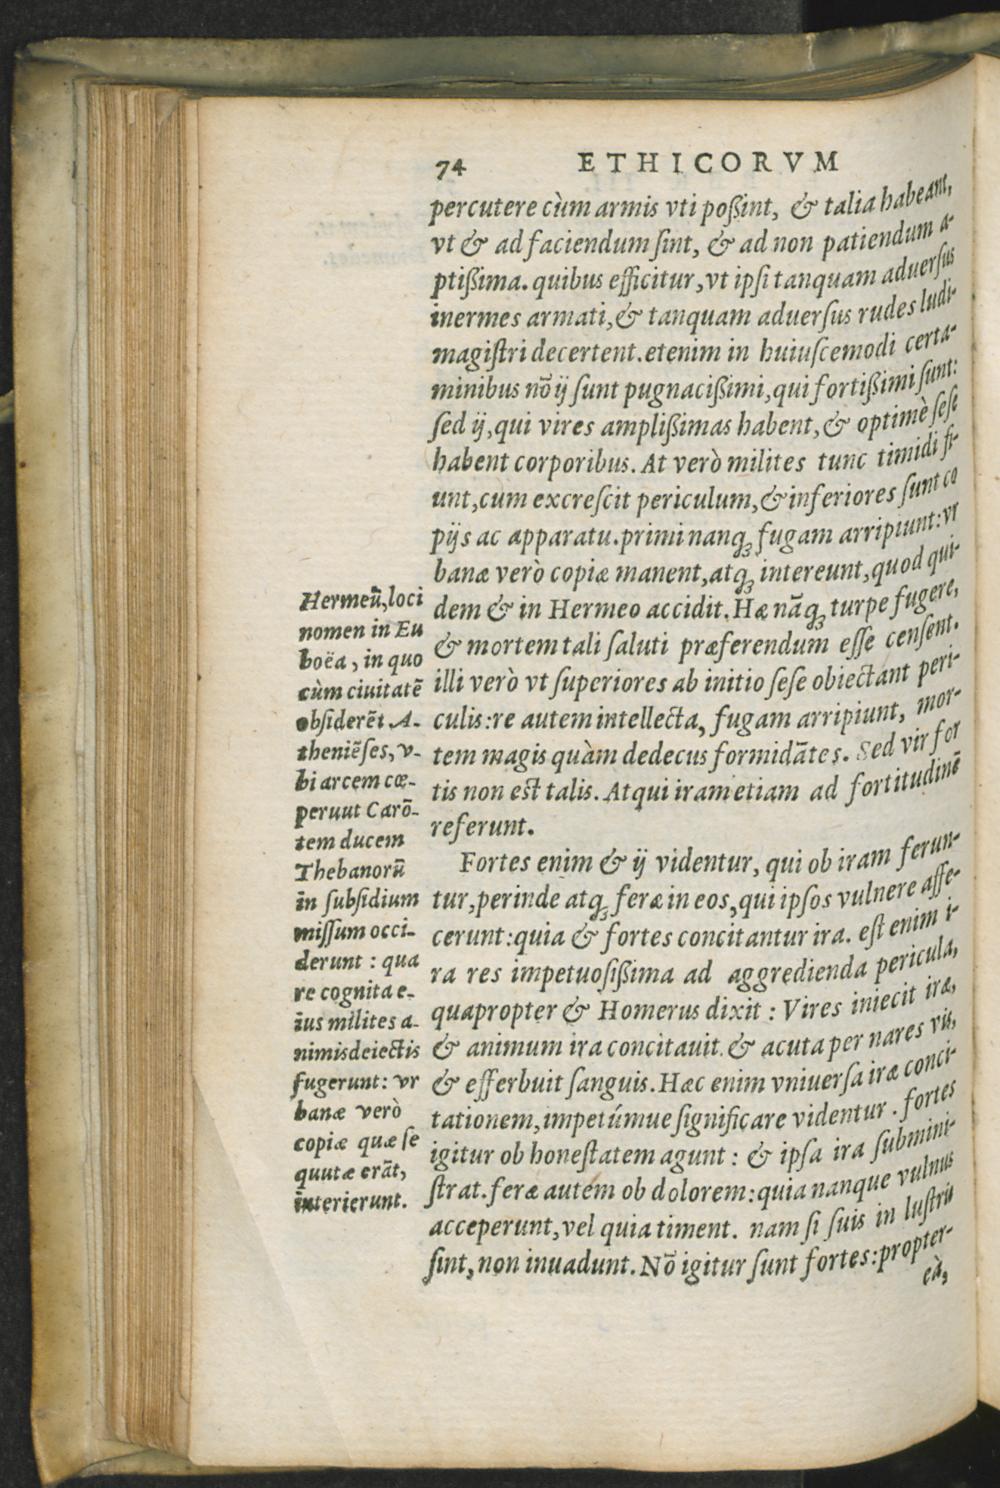 74 ETHICORVM
percutere cùm armis vti poßint, & talia habeant,
vt & ad faciendum ſint, & ad non patiendum a-
ptißima. quibus efficitur, vt ipſi tanquam aduerſus
inermes armati, & tanquam aduerſus rudes ludi-
magiſtri decertent. etenim in huiuſcemodi certa-
minibus nō ij ſunt pugnacißimi, qui fortißimi ſunt:
ſed ij, qui vires amplißimas habent, & optimè ſeſe
habent corporibus. At verò milites tunc timidi fi-
unt, cum excreſcit periculum, & inferiores ſunt co
pijs ac apparatu. primi nanq; fugam arripiunt: vr
banæ verò copiæ manent, atq; intereunt, quod qui-
dem & in Hermeo accidit. Hæ nāq; turpe fugere,
& mortem tali ſaluti præferendum eſſe cenſent.
illi verò vt ſuperiores ab initio ſeſe obiectant peri-
culis: re autem intellecta, fugam arripiunt, mor-
tem magis quàm dedecus formidātes. Sed vir for
tis non eſt talis. Atqui iram etiam ad fortitudinē
referunt.
Fortes enim & ij videntur, qui ob iram ferun-
tur, perinde atq; feræ in eos, qui ipſos vulnere affe-
cerunt: quia & fortes concitantur ira. eſt enim i-
ra res impetuoſißima ad aggredienda pericula,
quapropter & Homerus dixit: Vires iniecit iræ,
& animum ira concitauit. & acuta per nares vis,
& efferbuit ſanguis. Hæc enim vniuerſa iræ conci-
tationem, impetúmue ſignificare videntur. fortes
igitur ob honeſtatem agunt: & ipſa ira ſubmini-
ſtrat. feræ autem ob dolorem: quia nanque vulnus
acceperunt, vel quia timent. nam ſi ſuis in luſtris
ſint, non inuadunt. Nō igitur ſunt fortes: propter-
eà,
Hermeū, loci
nomen in Eu
boëa, in quo
cùm ciuitatē
obſiderēt A-
theniēſes, v-
bi arcem cœ-
perunt Carō-
tem ducem
Thebanorū
in ſubſidium
miſſum occi-
derunt: qua
re cognita e-
ius milites a-
nimis deiectis
fugerunt: vr
banæ verò
copiæ quæ ſe
quutæ erāt,
interierunt.